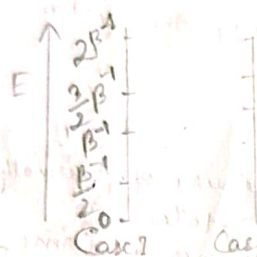 2β⁻¹
E
3/2 β⁻¹
β⁻¹
β⁻¹/2
0
Case 1 Cas